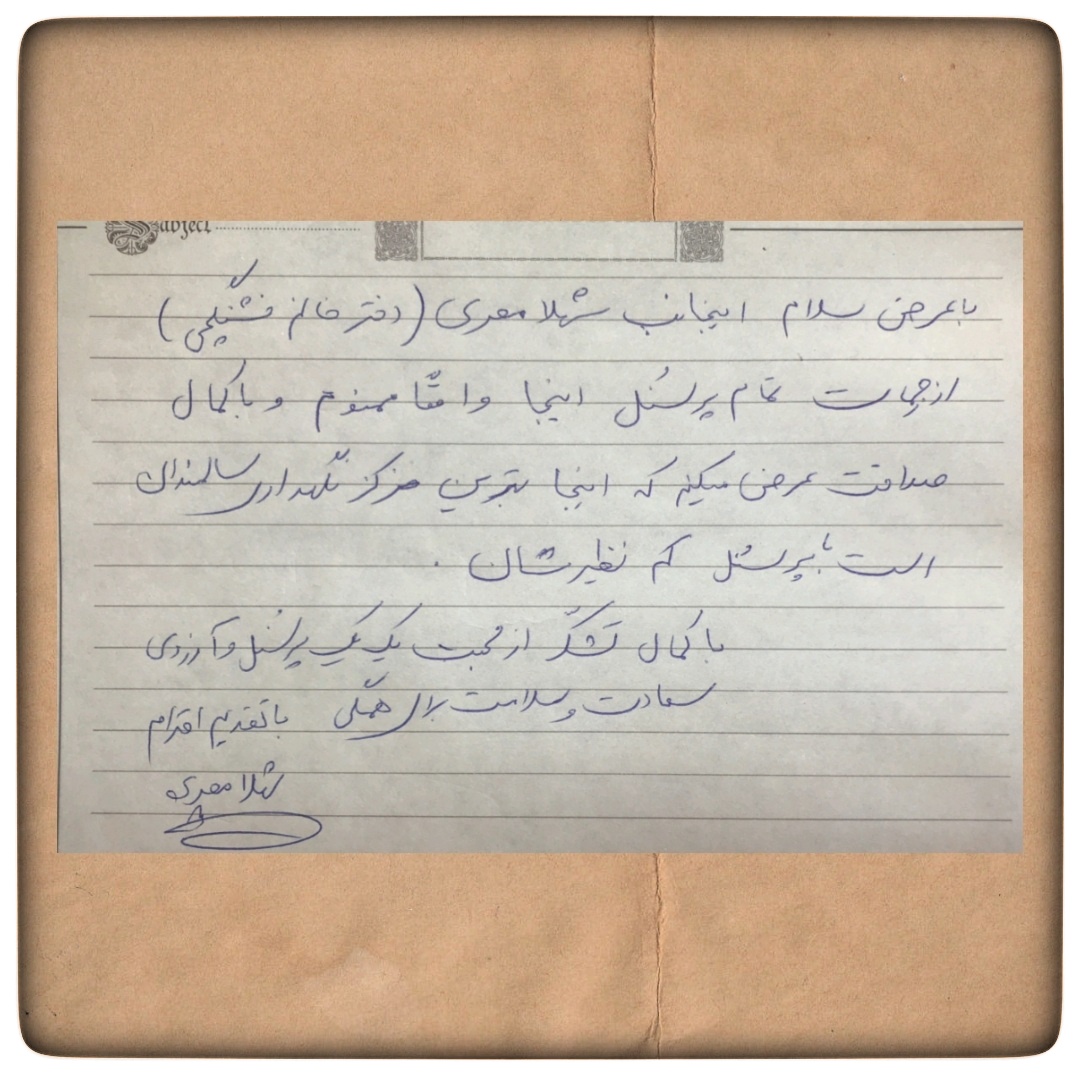 Subject
با عرض سلام اینجانب شهلا معری (دفتر خانم فشنگچی)
از زحمات تمام پرسُنل اینجا واقعاً ممنونم و با کمال
صداقت عرض میکنم که اینجا بهترین مرکز نگهداری سالمندان
است با پرسُنل کم نظیرشان .
با کمال تشکّر از محبت یک یک پرسُنل و آرزوی
سعادت و سلامت برای همگی با تقدیم احترام
شهلا معری